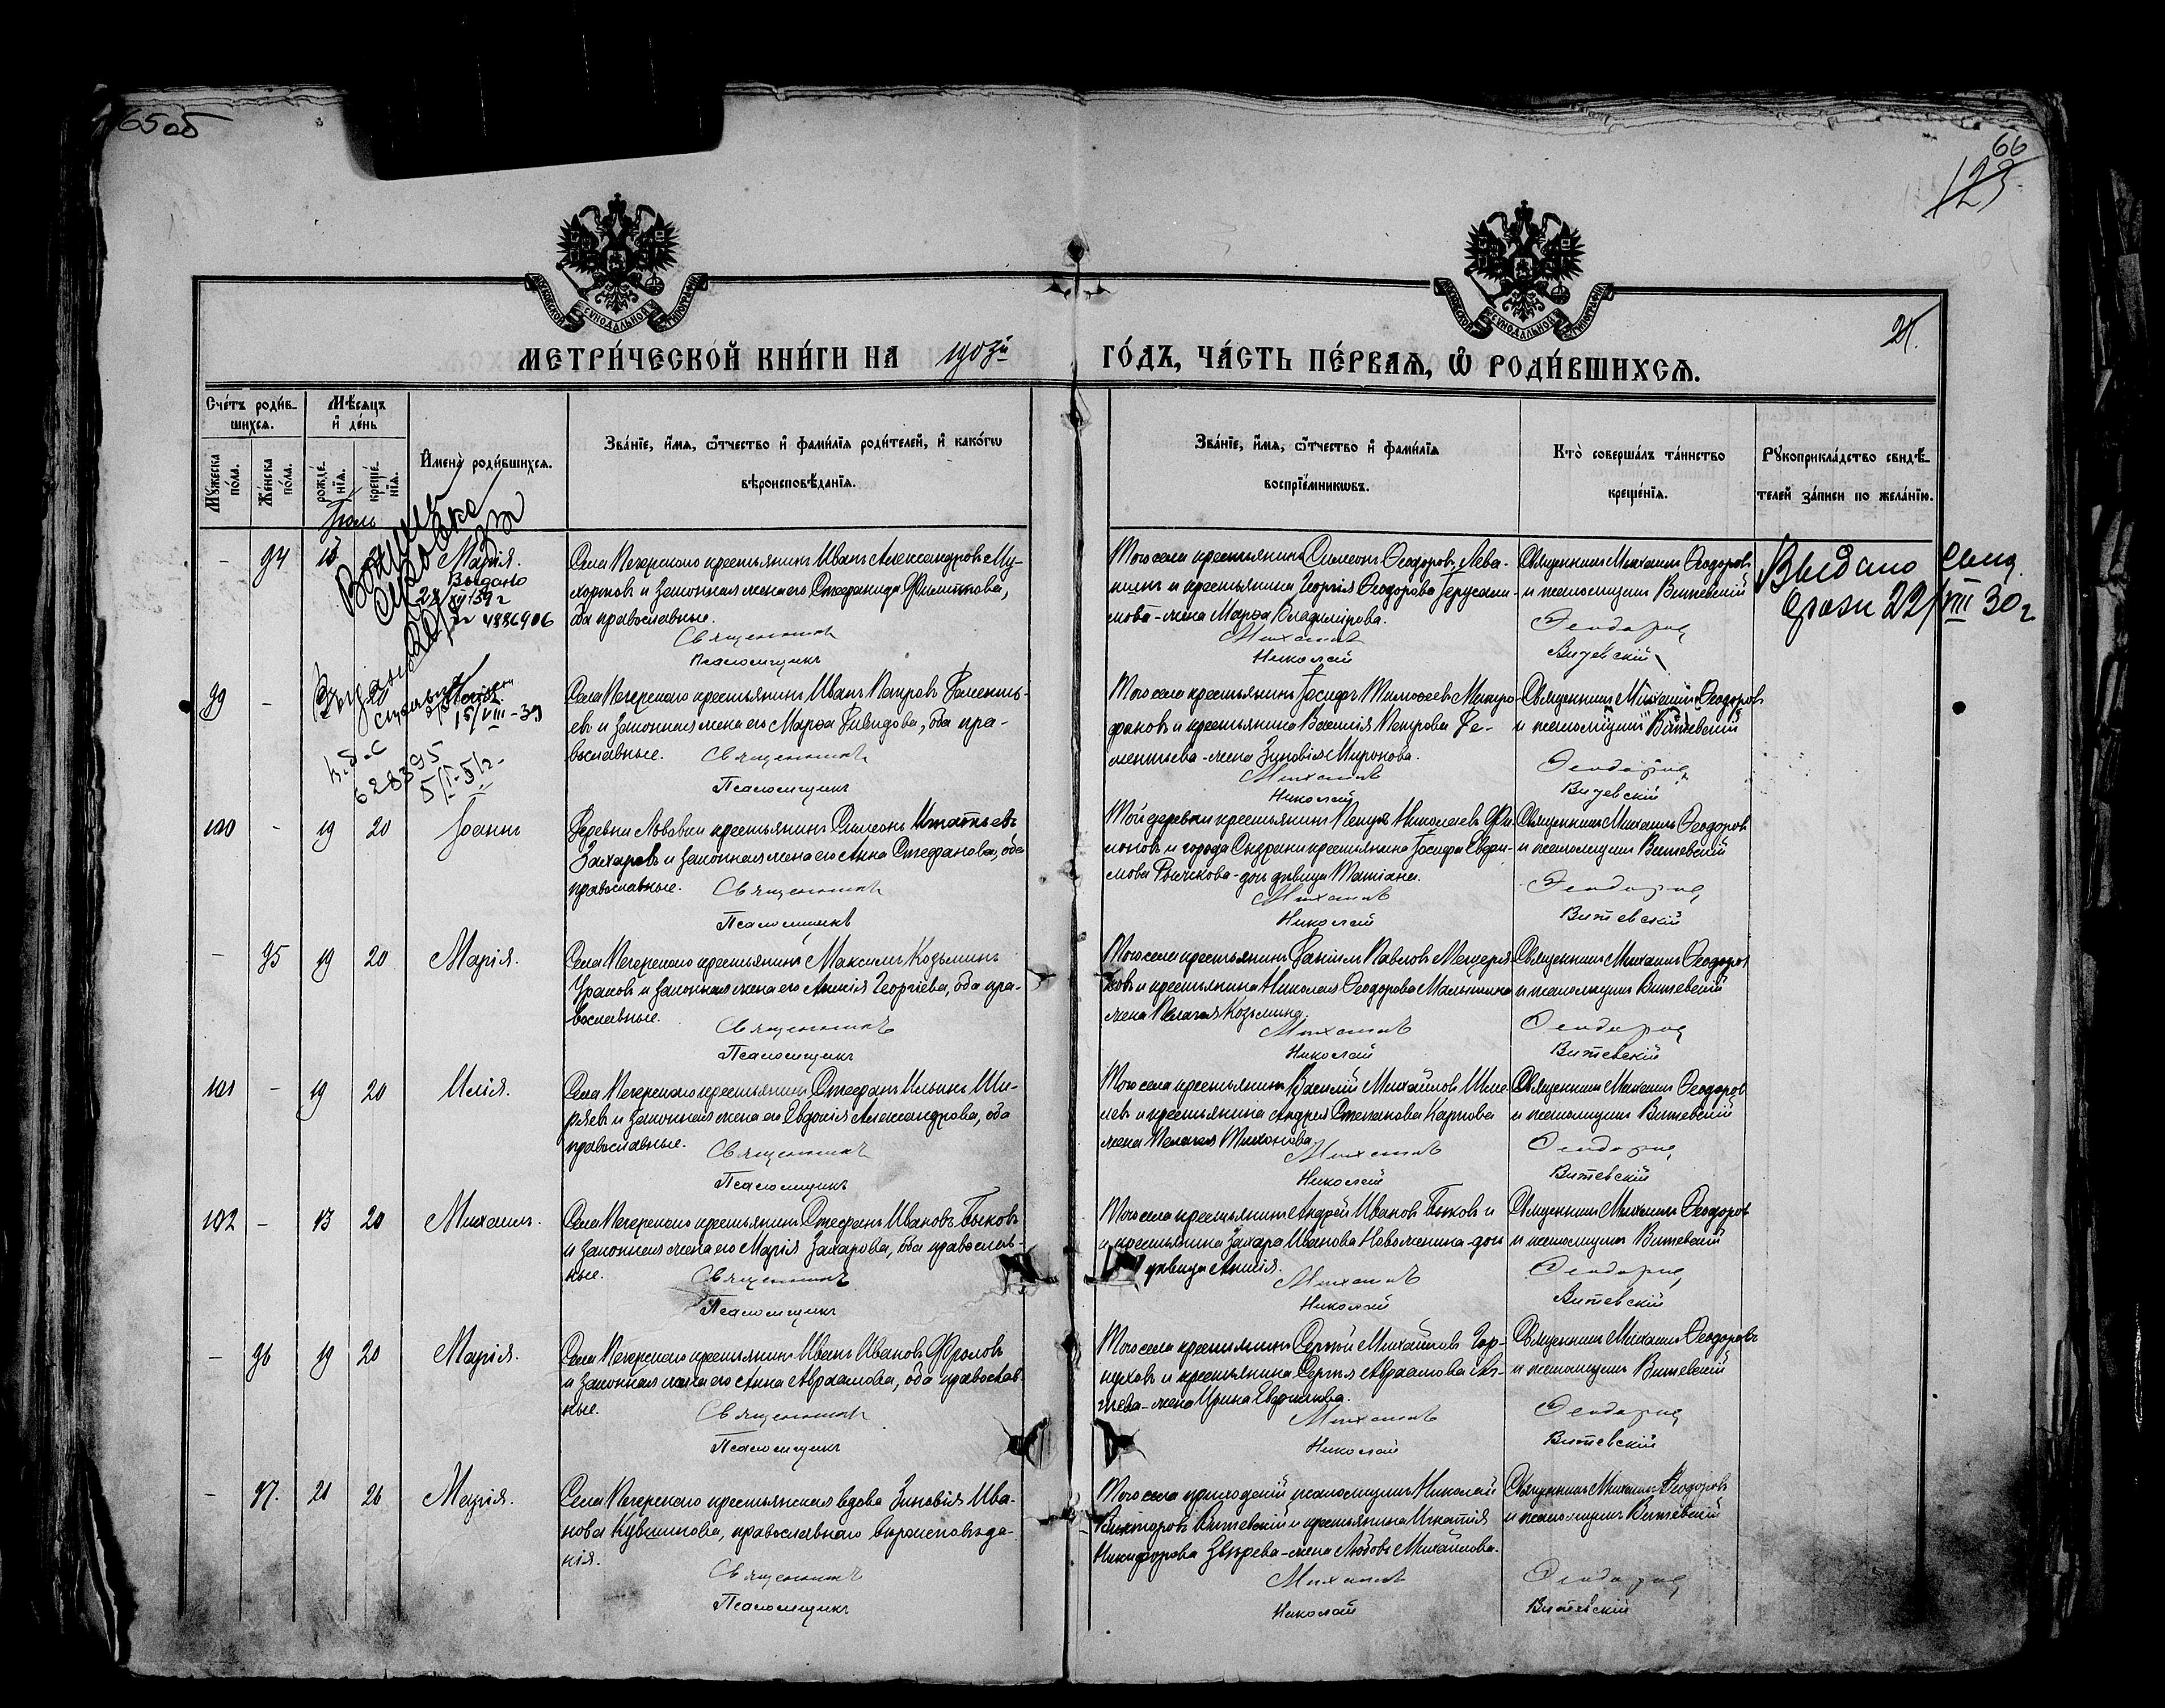 65об
66
123
МОСКОВСКОЙ СѴНОДАЛЬНОЙ ТИПОГРАФІИ
МОСКОВСКОЙ СѴНОДАЛЬНОЙ ТИПОГРАФІИ
МЕТРИ́ЧЕСКОЙ КНИ́ГИ НА 1903й ГО́ДЪ, ЧА́СТЬ ПЕ́РВАѦ, Ѡ҆ РОДИ́ВШИХСѦ.
Сче́тъ роди́в-
шихсѧ.
Мѣ́сѧцъ
и҆ де́нь
И҆мена̀ роди́вшихсѧ.
Зва́нїе, и҆́мѧ, ѻ҆́тчество и҆ фами́лїѧ роди́телей, и҆ како́гѡ
вѣроисповѣ́данїѧ.
Мꙋ́жеска
по́ла.
Же́нска
по́ла.
рожде́-
нїѧ.
креще́-
нїѧ.
Зва́нїе, и҆́мѧ, ѻ҆́тчество и҆ фами́лїѧ
воспрїе́мникѡвъ.
Кто̀ соверша́лъ та́инство
креще́нїѧ.
Рꙋкоприкла́дство свидѣ́-
телей за́писи по жела́нїю.
Іюль
— 94 Марія.
Выдано
4886906
Села Печерскаго крестьянинъ Иванъ Александровъ Му-
и законная жена его Стефанида
оба православные.
Священникъ
Псаломщикъ
Того села крестьянинъ Симеонъ Ѳеодоровъ Лева-
шинъ и крестьянина Георгія Ѳеодорова
жена Марѳа Владимірова.
Михаилъ
Николай
Священникъ Михаилъ Ѳеодоровъ
и псаломщикъ Витевскій
Ѳеодоровъ
Витевскій
Выдано
22/VIII 30г
99 —
15/VIII-39
628395
5/I-51г.
Села Печерскаго крестьянинъ Иванъ Петровъ
и законная жена его Марѳа оба пра-
вославные. Священникъ
Псаломщикъ
Того села крестьянинъ Іосифъ Тимоѳеевъ Митро-
фановъ и крестьянина Василія Петрова
жена Зиновія Миронова.
Михаилъ
Николай
Священникъ Михаилъ Ѳеодоровъ
и псаломщикъ Витевскій
Ѳеодоровъ
Витевскій
100 — 19 20 Іоаннъ
Деревни Львовки крестьянинъ Симеонъ Игнатьевъ
Захаровъ и законная жена его Анна Стефанова, оба
православные. Священникъ
Псаломщикъ
Той деревни крестьянинъ Петръ Николаевъ Фи-
моновъ и города Сызрани крестьянина Іосифа Евфи-
мова Рычкова - дочь дѣвица Татіана.
Михаилъ
Николай
Священникъ Михаилъ Ѳеодоровъ
и псаломщикъ Витевскій
Ѳеодоровъ
Витевскій
— 95 19 20 Марія.
Села Печерскаго крестьянинъ Максимъ Козьминъ
и законная жена его Георгіева, оба пра-
вославные. Священникъ
Псаломщикъ
Того села крестьянинъ Даніилъ Павловъ Мещеря-
ковъ и крестьянина Николая Ѳеодорова Малышина
жена Пелагея Козьмина.
Михаилъ
Николай
Священникъ Михаилъ Ѳеодоровъ
и псаломщикъ Витевскій
Ѳеодоровъ
Витевскій
101 — 19 20 Илія.
Села Печерскаго крестьянинъ Стефанъ Ильинъ Ши-
ряевъ и законная жена его Евдокія Александрова, оба
православные. Священникъ
Псаломщикъ
Того села крестьянинъ Василій Михайловъ Шме-
левъ и крестьянина Андрея Степанова Карпова
жена Пелагея Тихонова.
Михаилъ
Николай
Священникъ Михаилъ Ѳеодоровъ
и псаломщикъ Витевскій
Ѳеодоровъ
Витевскій
102 — 13 20 Михаилъ.
Села Печерскаго крестьянинъ Стефанъ Ивановъ Быковъ
и законная жена его Марія Захарова, оба православ-
ные. Священникъ
Псаломщикъ
Того села крестьянинъ Андрей Ивановъ Быковъ и
и крестьянина Захара Иванова Новоженина - дочь
дѣвица
Михаилъ
Николай
Священникъ Михаилъ Ѳеодоровъ
и псаломщикъ Витевскій
Ѳеодоровъ
Витевскій
— 96 19 20 Марія.
Села Печерскаго крестьянинъ Иванъ Ивановъ Фроловъ
и законная жена его Анна Авраамова, оба православ-
ные. Священникъ
Псаломщикъ
Того села крестьянинъ Сергѣй Михайловъ Гор-
и крестьянина Сергѣя Авраамова
жена Ирина Евдокимова.
Михаилъ
Николай
Священникъ Михаилъ Ѳеодоровъ
и псаломщикъ Витевскій
Ѳеодоровъ
Витевскій
— 97. 21 26 Марія.
Села Печерскаго крестьянская вдова Зиновія Ива-
нова Кувшинова, православнаго вѣроисповѣда-
нія.
Священникъ
Псаломщикъ
Того села приходскій псаломщикъ Николай
Викторовъ Витевскій и крестьянина Игнатія
Никифорова Звѣрева - жена Любовь Михайлова.
Михаилъ
Николай
Священникъ Михаилъ Ѳеодоровъ
и псаломщикъ Витевскій
Ѳеодоровъ
Витевскій